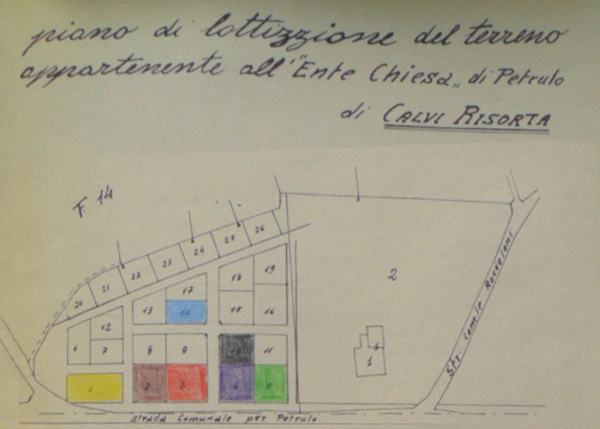 piano di lottizzione del terreno
appartenente all' "Ente Chiesa" di Petrulo
di CALVI RISORTA
F. 14
20 21 22 23 24 25 26
13 17 18 19
12 15 16
6 7 8 9 11
2
1
Str. Com.le
Strada Comunale per Petrulo